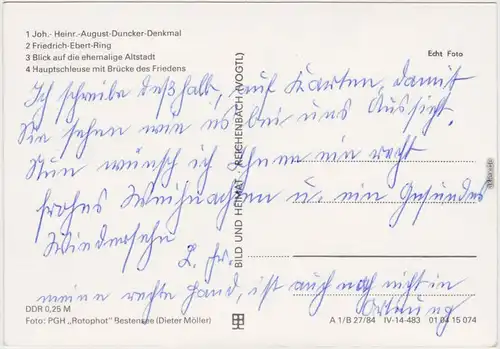 1 Joh.- Heinr.-August-Duncker-Denkmal
2 Friedrich-Ebert-Ring
3 Blick auf die ehemalige Altstadt
4 Hauptschleuse mit Brücke des Friedens
Echt Foto
Ich schreibe deßhalb, auf Karten, damit
Sie sehen wie es bei uns Aussigt.
Nun wünsch ich Ihnen ein recht
frohes Weihnachten u. ein Gesundes
Wiedersehn
L. Fr.
meine rechte Hand, ist auch noch nicht in
Ortnung
BILD UND HEIMAT REICHENBACH (VOGTL)
DDR 0,25 M
Foto: PGH „Rotophot" Bestensee (Dieter Möller)
A 1/B 27/84 IV-14-483 01 04 15 074